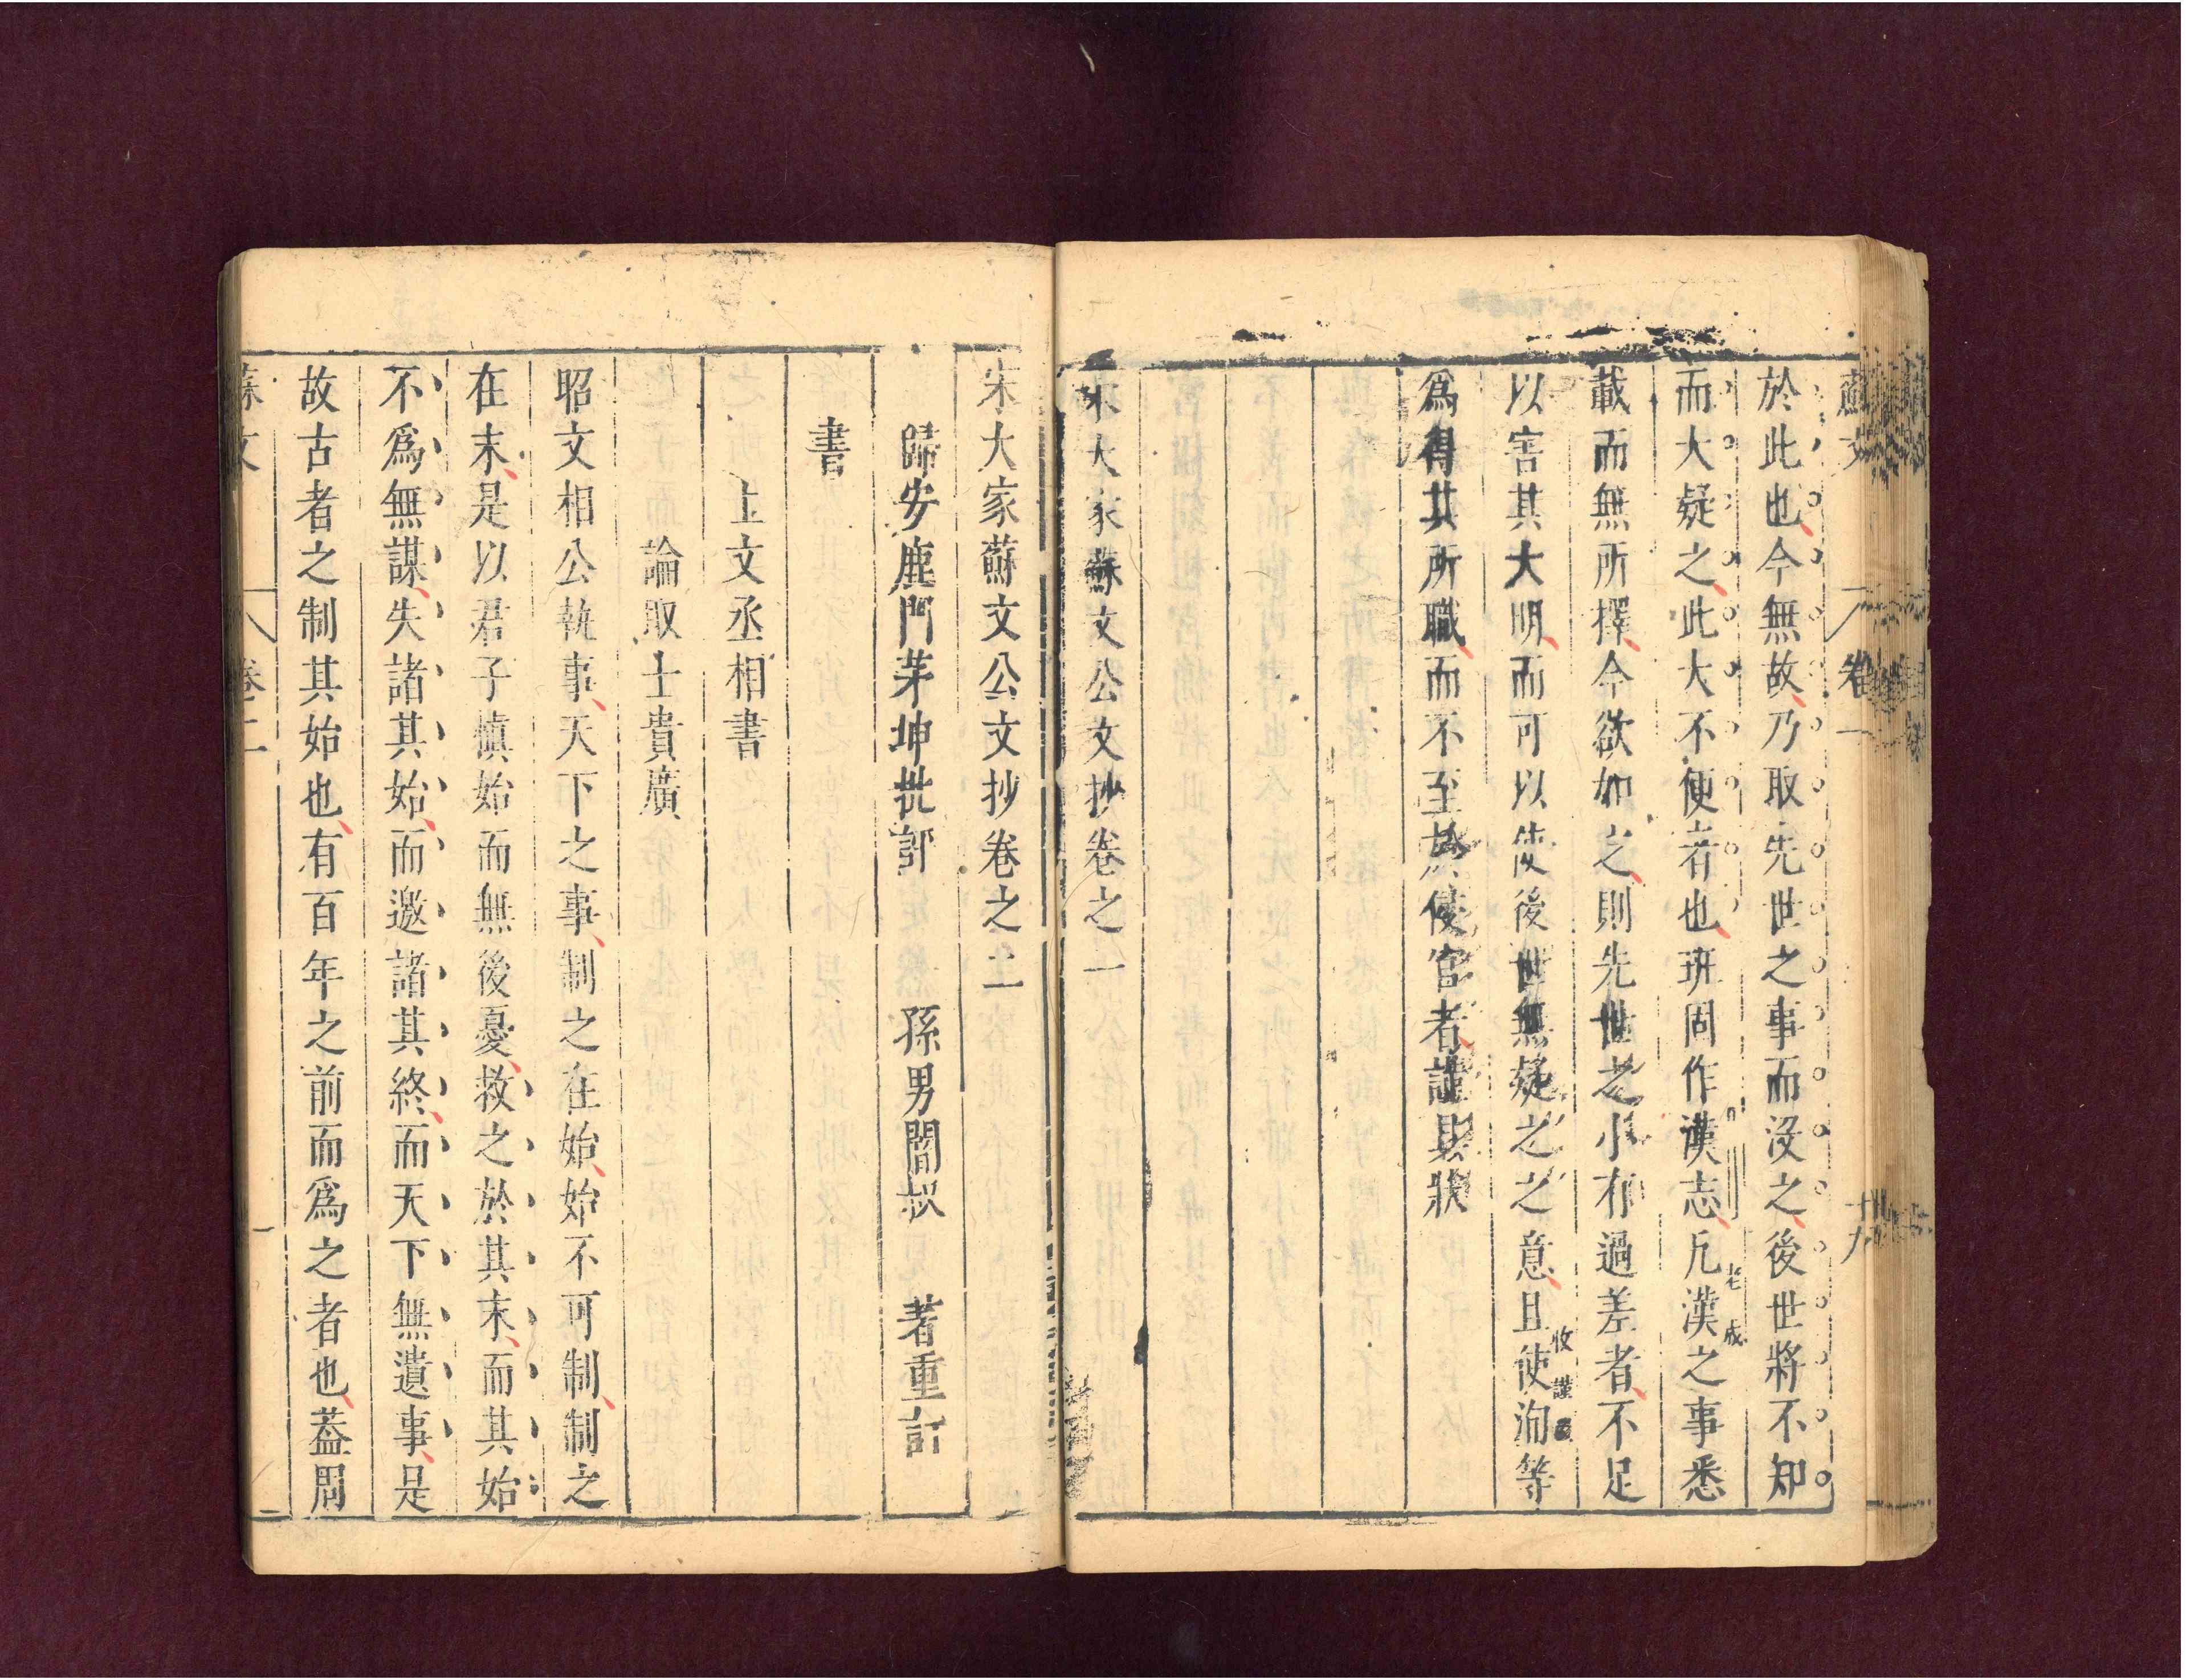 蘇文 卷一 卅九
於此也今無故乃取先世之事而沒之後世將不知
而大疑之此大不便者也班固作漢志凡漢之事悉
老成
載而無所擇今欲如之則先世之小有過差者不足
以害其大明而可以使後世無疑之之意且使洵等
收謹嚴
爲得其所職而不至於侵官者謹具狀
宋大家蘇文公文抄卷之一
宋大家蘇文公文抄卷之二
歸安鹿門茅坤批評 孫男闇叔 著重訂
書
上文丞相書
論取士貴廣
昭文相公執事天下之事制之在始始不可制制之
在末是以君子慎始而無後憂救之於其末而其始
不爲無謀失諸其始而邀諸其終而天下無遺事是
故古者之制其始也有百年之前而爲之者也葢周
蘇文 卷二 一